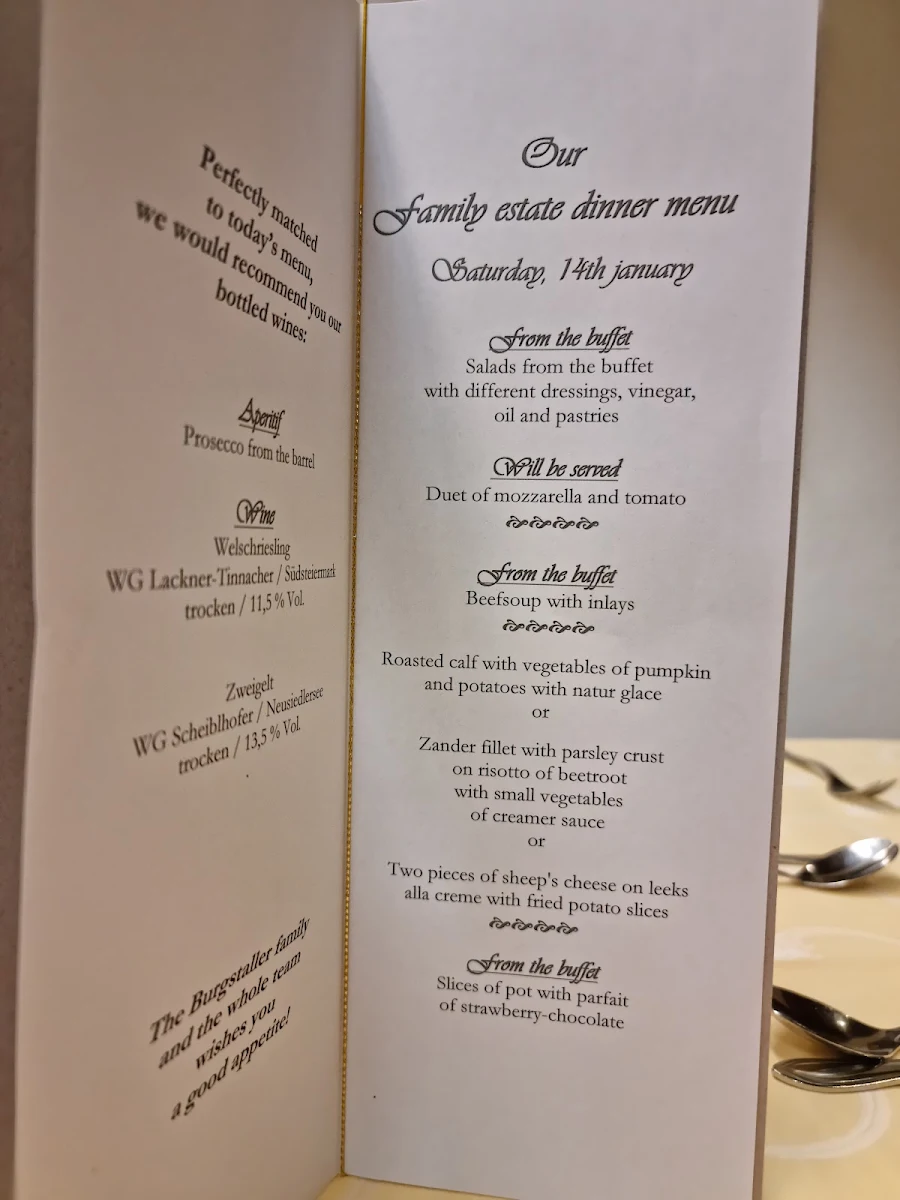 Perfectly matched
to today's menu,
we would recommend you our
bottled wines:
Aperitif
Prosecco from the barrel
Wine
Welschriesling
WG Lackner-Tinnacher / Südsteiermark
trocken / 11,5 % Vol.
Zweigelt
WG Scheiblhofer / Neusiedlersee
trocken / 13,5 % Vol.
The Burgstaller family
and the whole team
wishes you
a good appetite!
Our
Family estate dinner menu
Saturday, 14th january
From the buffet
Salads from the buffet
with different dressings, vinegar,
oil and pastries
Will be served
Duet of mozzarella and tomato
From the buffet
Beefsoup with inlays
Roasted calf with vegetables of pumpkin
and potatoes with natur glace
or
Zander fillet with parsley crust
on risotto of beetroot
with small vegetables
of creamer sauce
or
Two pieces of sheep's cheese on leeks
alla creme with fried potato slices
From the buffet
Slices of pot with parfait
of strawberry-chocolate